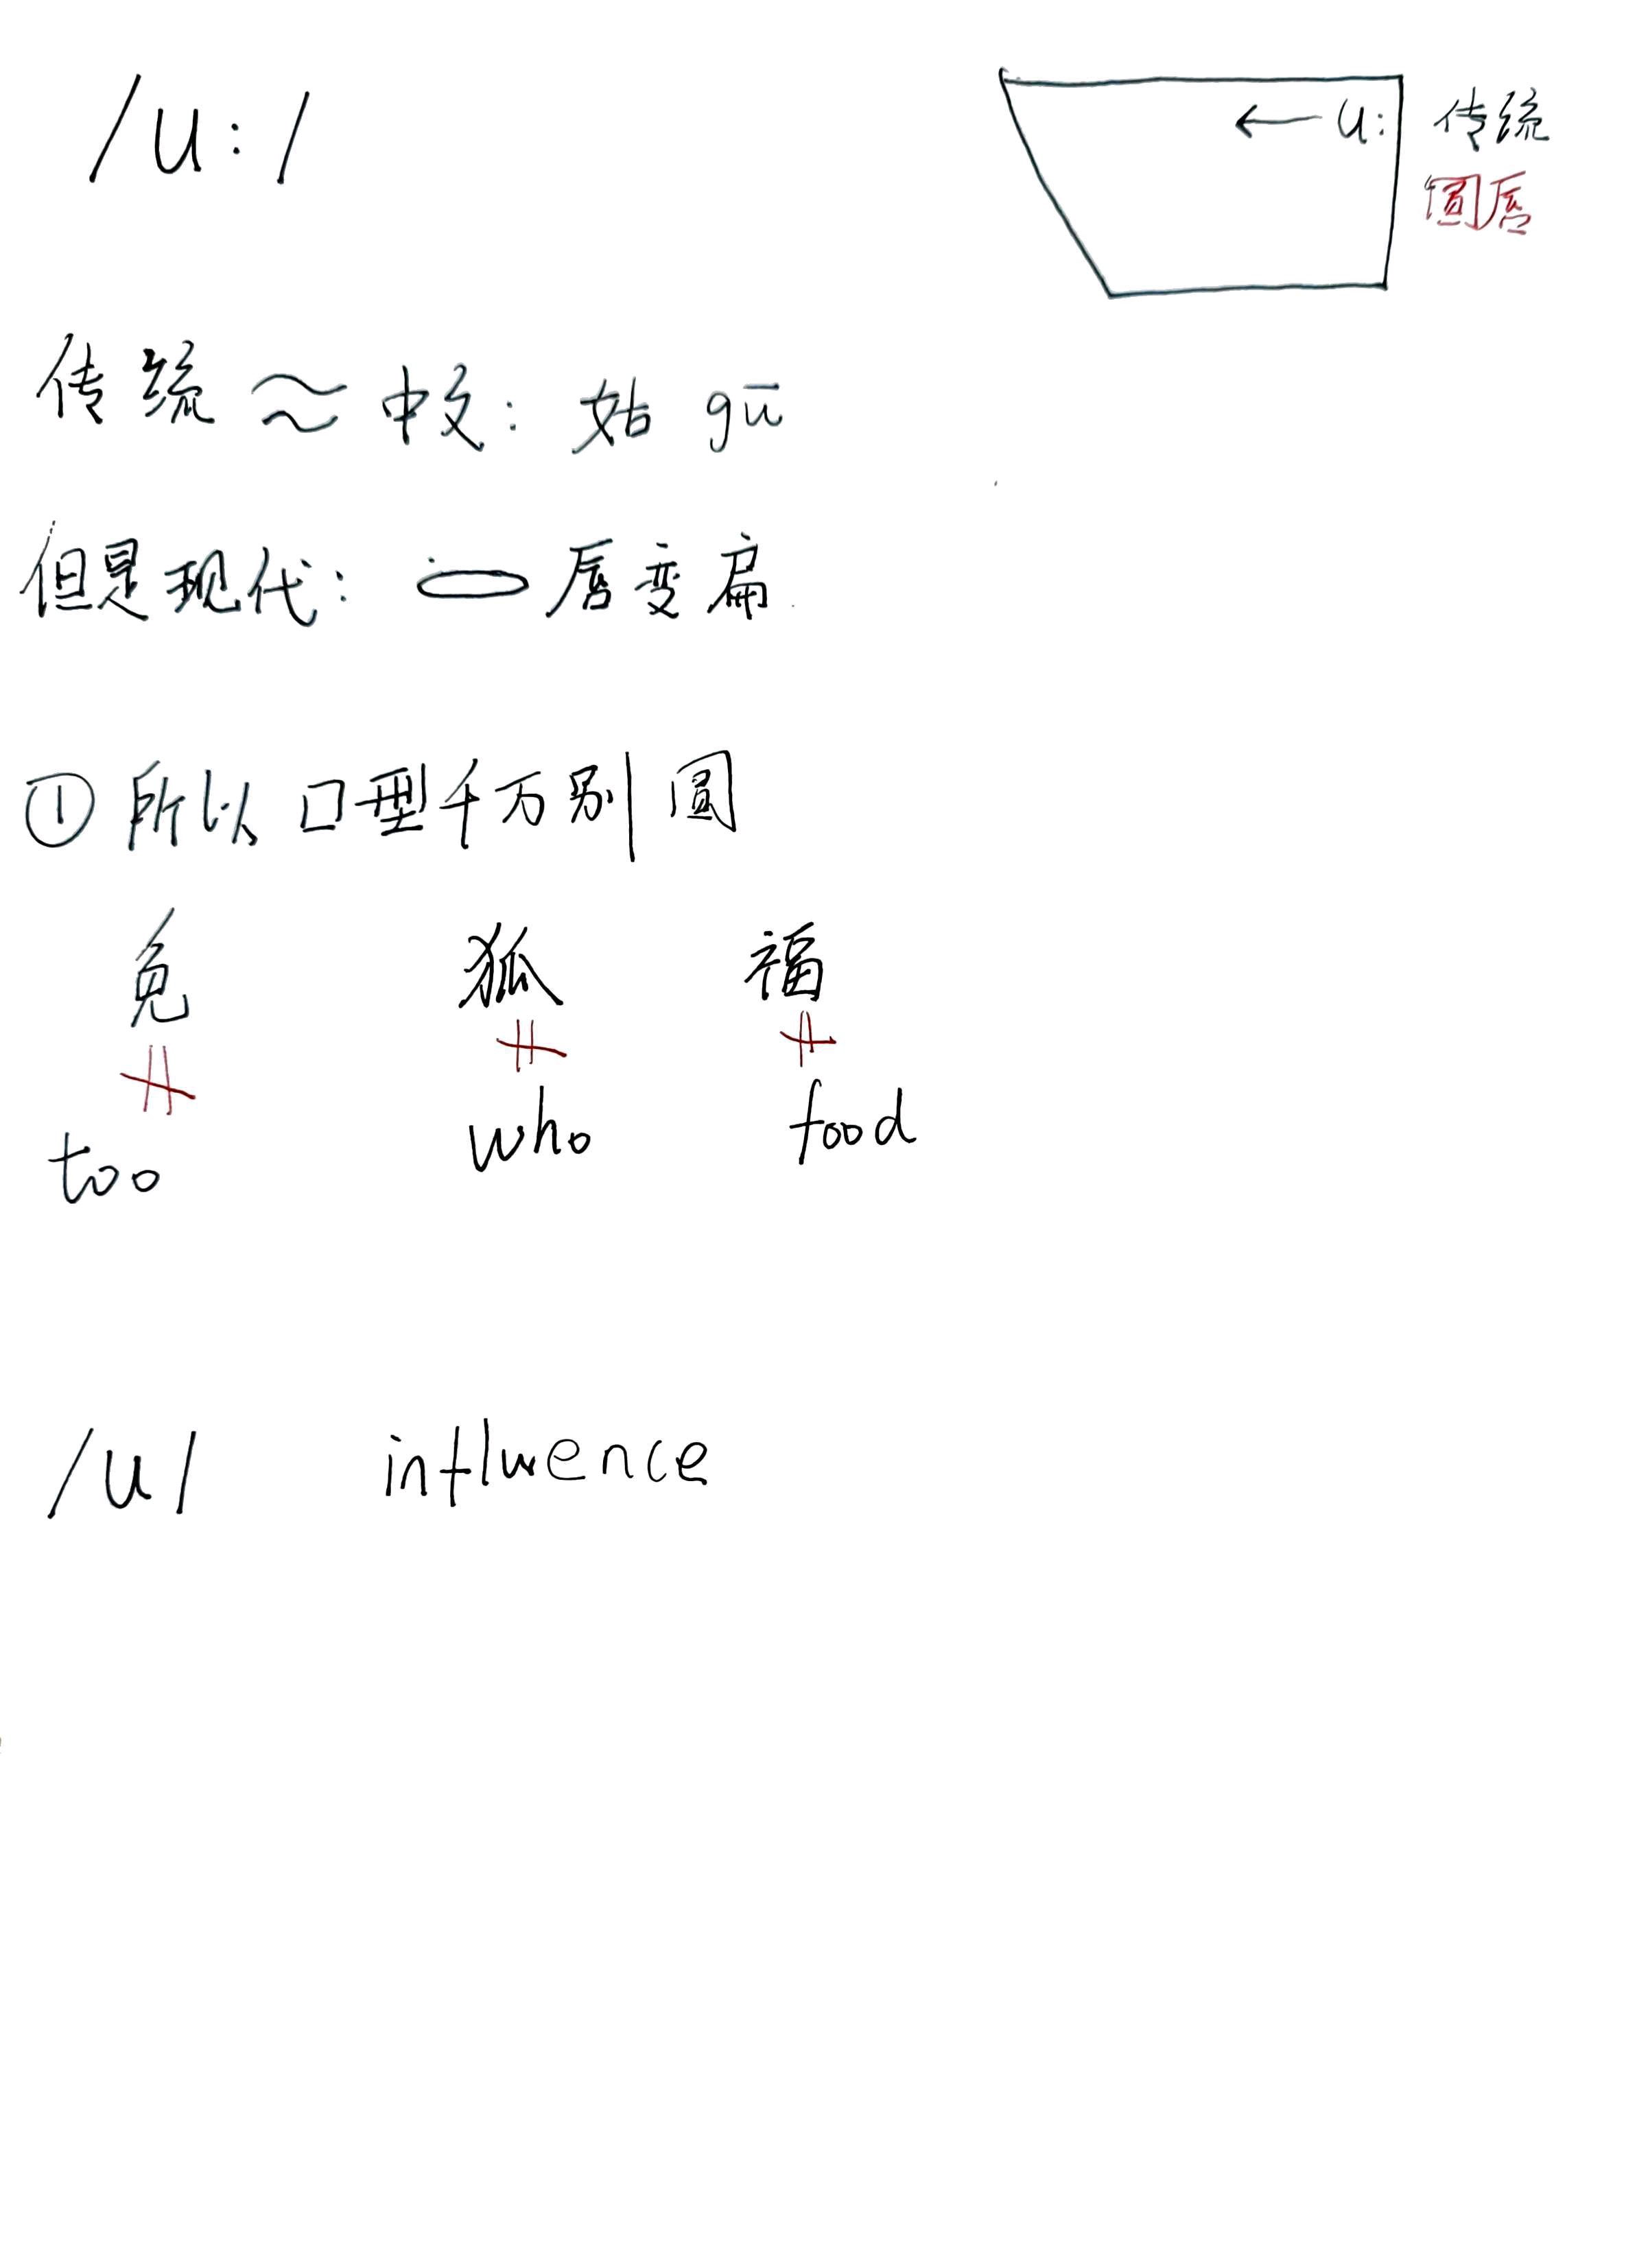 /u:/
← u: 传统
圆唇
传统 ≈ 中文: 姑 gū
但是现代: 唇变扁
① 所以口型千万别圆
兔 狐 福
≠ ≠ ≠
too who food
/u/ influence